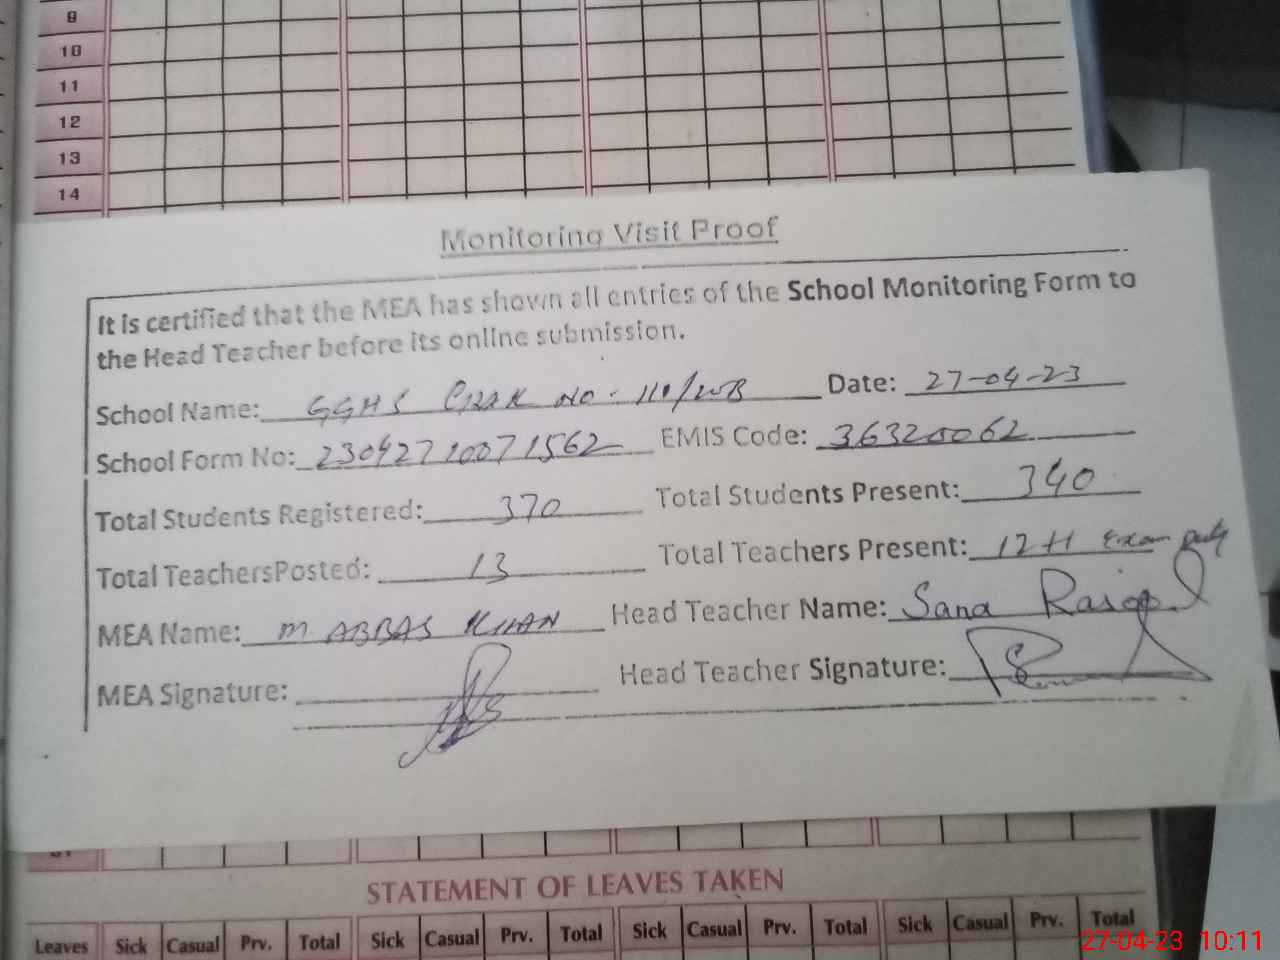 9
10
11
12
13
14
Monitoring Visit Proof
It is certified that the MEA has shown all entries of the School Monitoring Form to
the Head Teacher before its online submission.
School Name: GGHS CHAK NO. 110/WB Date: 27-04-23
School Form No: 23042710071562 EMIS Code: 36320062
Total Students Registered: 370 Total Students Present: 340
Total TeachersPosted: 13 Total Teachers Present: 12+1 Exam duty
MEA Name: M ABBAS KHAN Head Teacher Name: Sana Rasool
MEA Signature: Head Teacher Signature:
STATEMENT OF LEAVES TAKEN
Leaves Sick Casual Prv. Total Sick Casual Prv. Total Sick Casual Prv. Total Sick Casual Prv. Total
27-04-23 10:11